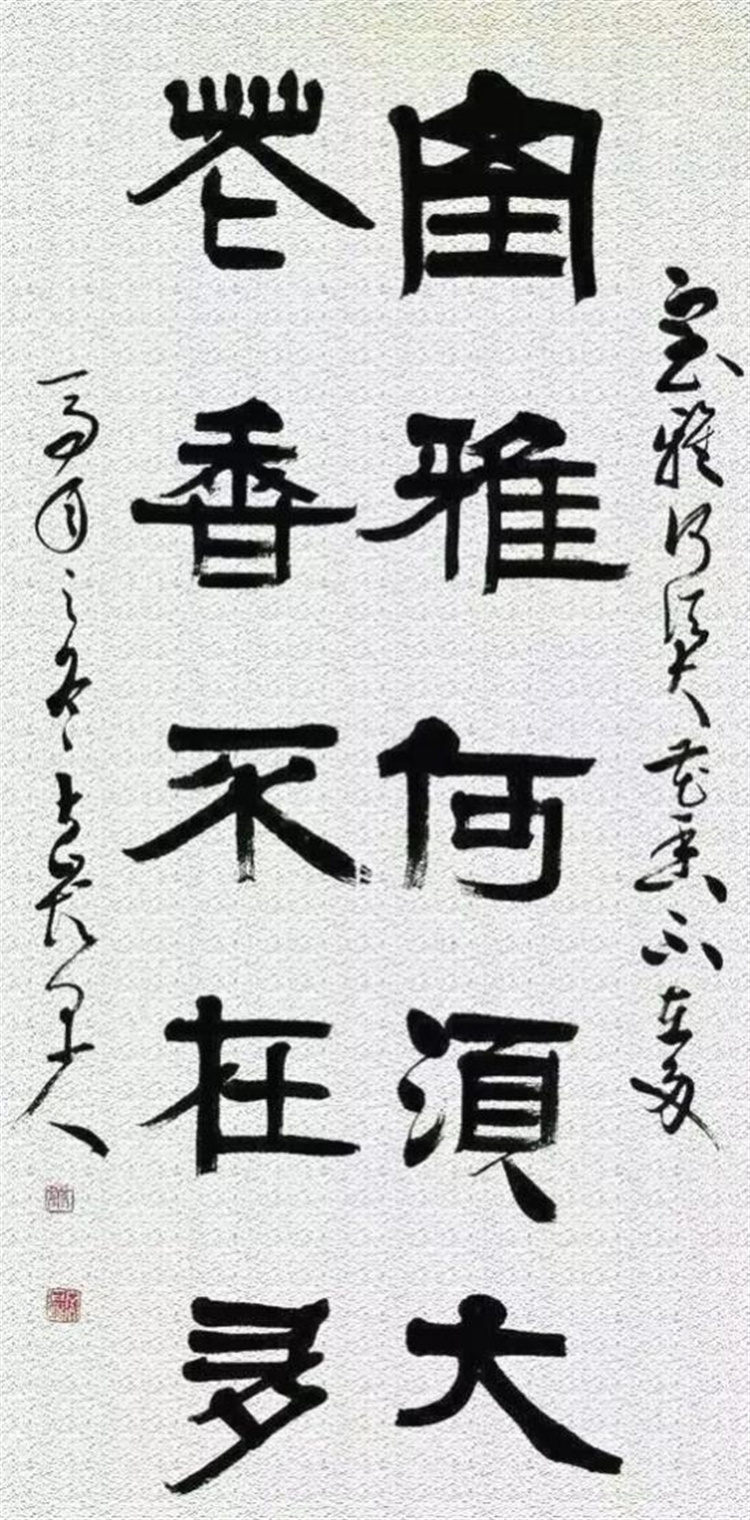 室雅何須大花香不在多
室雅何須大
花香不在多
之冬